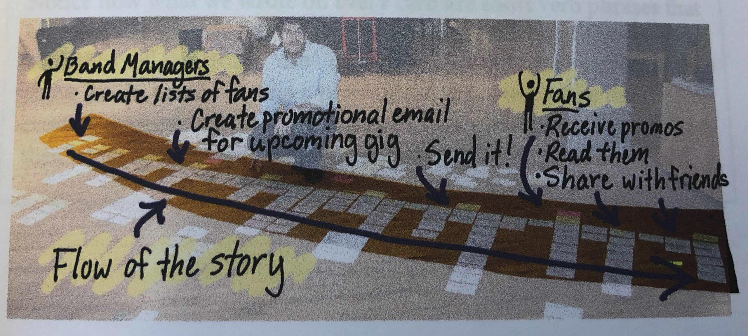 Band Managers
· Create lists of fans
· Create promotional email
for upcoming gig
· Send it!
Fans
· Receive promos
· Read them
· Share with friends
Flow of the story